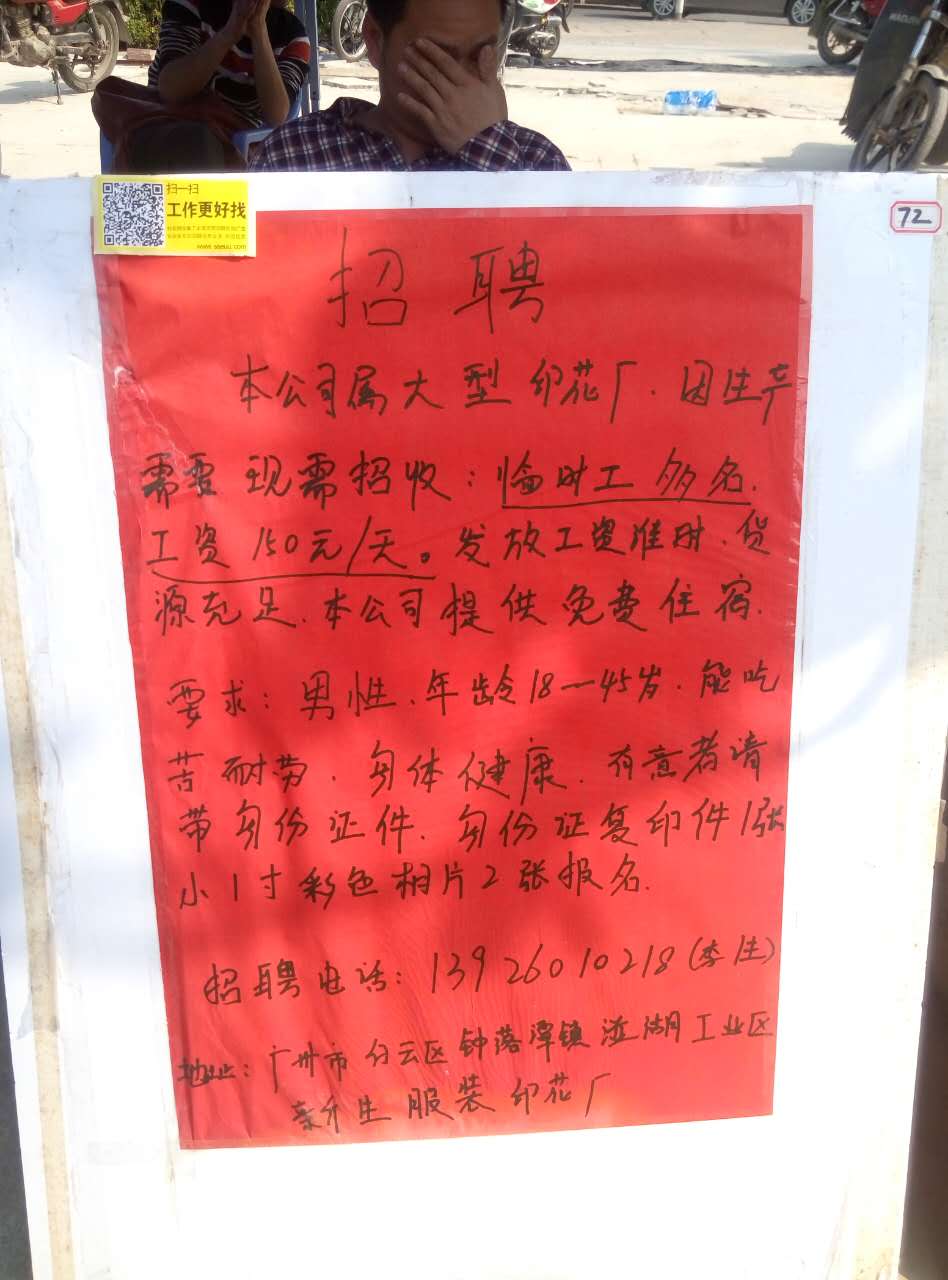 扫一扫
工作更好找
72
招聘
本公司属大型印花厂.因生产
需要现需招收:临时工多名.
工资150元/天。发放工资准时.货
源充足.本公司提供免费住宿.
要求:男性.年龄18一45岁.能吃
苦耐劳.身体健康.有意者请
带身份证件.身份证复印件1张
小1寸彩色相片2张报名.
招聘电话:13926010218(李生)
地址:广州市白云区钟落潭镇湴湖工业区
新生服装印花厂